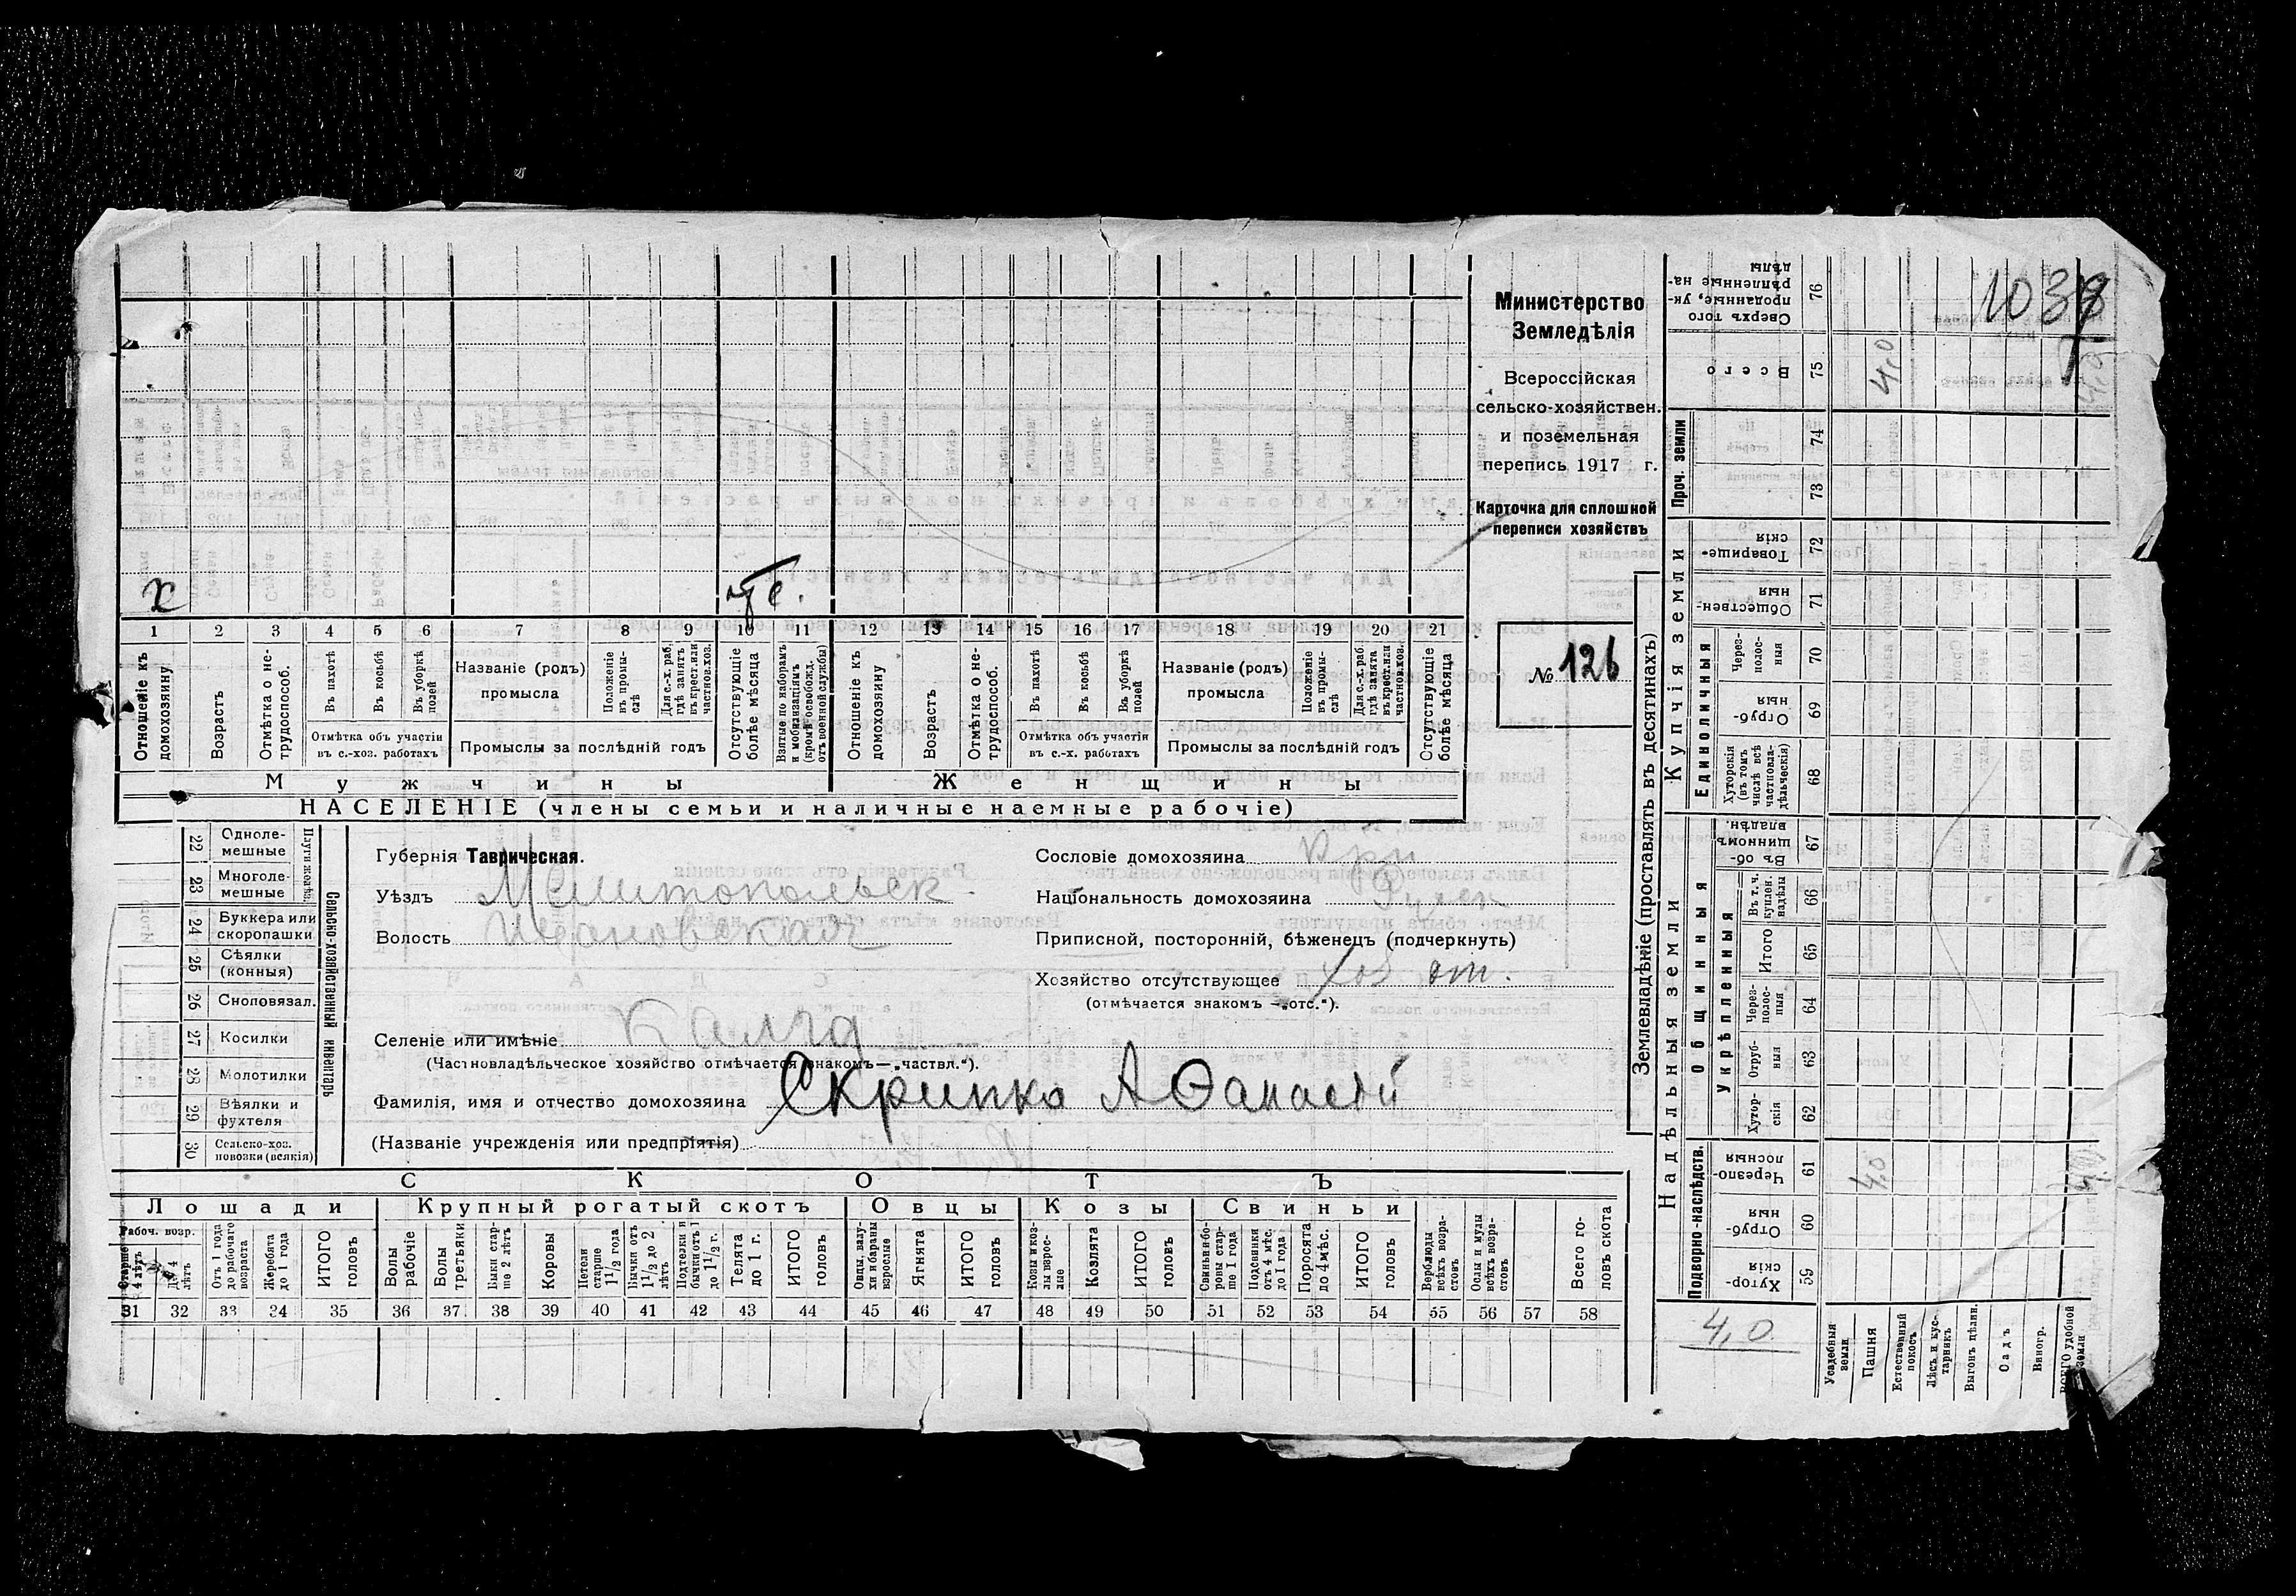 1038
х
1 2 3 4 5 6 7 8 9 10 11 12 13 14 15 16 17 18 19 20 21
Отношеніе къ домохозяину
Возрастъ
Отмѣтка о не-трудоспособ.
Въ пахотѣ
Въ косьбѣ
Въ уборкѣ полей
Отмѣтка объ участіи въ с.-хоз. работахъ
Названіе (родъ) промысла
Положеніе въ промы-слѣ
Для с.-х. раб. гдѣ занятъ въ крест. или частнов. хоз.
Промыслы за послѣдній годъ
Отсутствующіе болѣе мѣсяца
Взятые по наборамъ и мобилизаціямъ (кромѣ освобожд. отъ военной службы)
Отношеніе къ домохозяину
Возрастъ
Отмѣтка о не-трудоспособ.
Въ пахотѣ
Въ косьбѣ
Въ уборкѣ полей
Отмѣтка объ участіи въ с.-х. работахъ
Названіе (родъ) промысла
Положеніе въ промы-слѣ
Для с.-х. раб. гдѣ занята въ крест. или частнов. хоз.
Промыслы за послѣдній годъ
Отсутствующіе болѣе мѣсяца
Мужчины Женщины
НАСЕЛЕНІЕ (члены семьи и наличные наемные рабочіе)
Министерство
Земледѣлія
Всероссійская
сельско-хозяйствен.
и поземельная
перепись 1917 г.
Карточка для сплошной
переписи хозяйствъ
№ 126
Сельско-хозяйственный инвентарь
22 Одноле-мешные
23 Многоле-мешные
24 Буккера или скоропашки
25 Сѣялки (конныя)
26 Сноповязал.
27 Косилки
28 Молотилки
29 Вѣялки и фухтеля
30 Сельско-хоз. повозки (всякія)
Губернія Таврическая.
Уѣздъ Мелитопольск
Волость
Селеніе или имѣніе Калга
(Частновладѣльческое хозяйство отмѣчается знакомъ — „частвл.“).
Фамилія, имя и отчество домохозяина Скрипка Аѳанасій
(Названіе учрежденія или предпріятія)
Сословіе домохозяина Кри
Національность домохозяина
Приписной, посторонній, бѣженецъ (подчеркнуть)
Хозяйство отсутствующее
(отмѣчается знакомъ — „отс.“).
СКОТЪ
Лошади Крупный рогатый скотъ Овцы Козы Свиньи
Рабоч. возр.
Старше 4 лѣтъ
До 4 лѣтъ
Отъ 1 года до рабочаго возраста
Жеребята до 1 года
ИТОГО головъ
Волы рабочіе
Волы третьяки
Быки стар-ше 2 лѣтъ
Коровы
Нетели старше 1 1/2 года
Бычки отъ 1 1/2 до 2 лѣтъ
Подтелки и бычки отъ 1 до 1 1/2 г.
Телята до 1 г.
ИТОГО головъ
Овцы, валу-хи и бараны взрослые
Ягнята
ИТОГО головъ
Козы и коз-лы взрос-лые
Козлята
ИТОГО головъ
Свиньи и бо-ровы стар-ше 1 года
Подсвинки отъ 4 мѣс. до 1 года
Поросята до 4 мѣс.
ИТОГО головъ
Верблюды всѣхъ возра-стовъ
Ослы и мулы всѣхъ возра-стовъ
Всего го-ловъ скота
31 32 33 34 35 36 37 38 39 40 41 42 43 44 45 46 47 48 49 50 51 52 53 54 55 56 57 58
Землевладѣніе (проставлять въ десятинахъ)
Надѣльныя земли Купчія земли Проч. земли
Подворно-наслѣдств. Общинныя Единоличныя
Укрѣпленныя
Хутор-скія 59
Отруб-ныя 60
Черезпо-лосныя 61
Хутор-скія 62
Отруб-ныя 63
Через-полос-ныя 64
Итого 65
Въ т. ч. купчен. надѣлы 66
Въ об-щинномъ владѣн. 67
Хуторскія (въ томъ числѣ всѣ частновла-дѣльческія) 68
Отруб-ныя 69
Через-полос-ныя 70
Обществен-ныя 71
Товарище-скія 72
73
74
Всего 75
Сверхъ того проданные, ук-рѣпленные на-дѣлы 76
4,0
Усадебныя земли
Пашня 4,0 4,0
Естественный покосъ
Лѣсъ и кус-тарникъ
Выгонъ цѣлин.
Садъ
Виногр.
ВСЕГО удобной земли 4,0 4,0